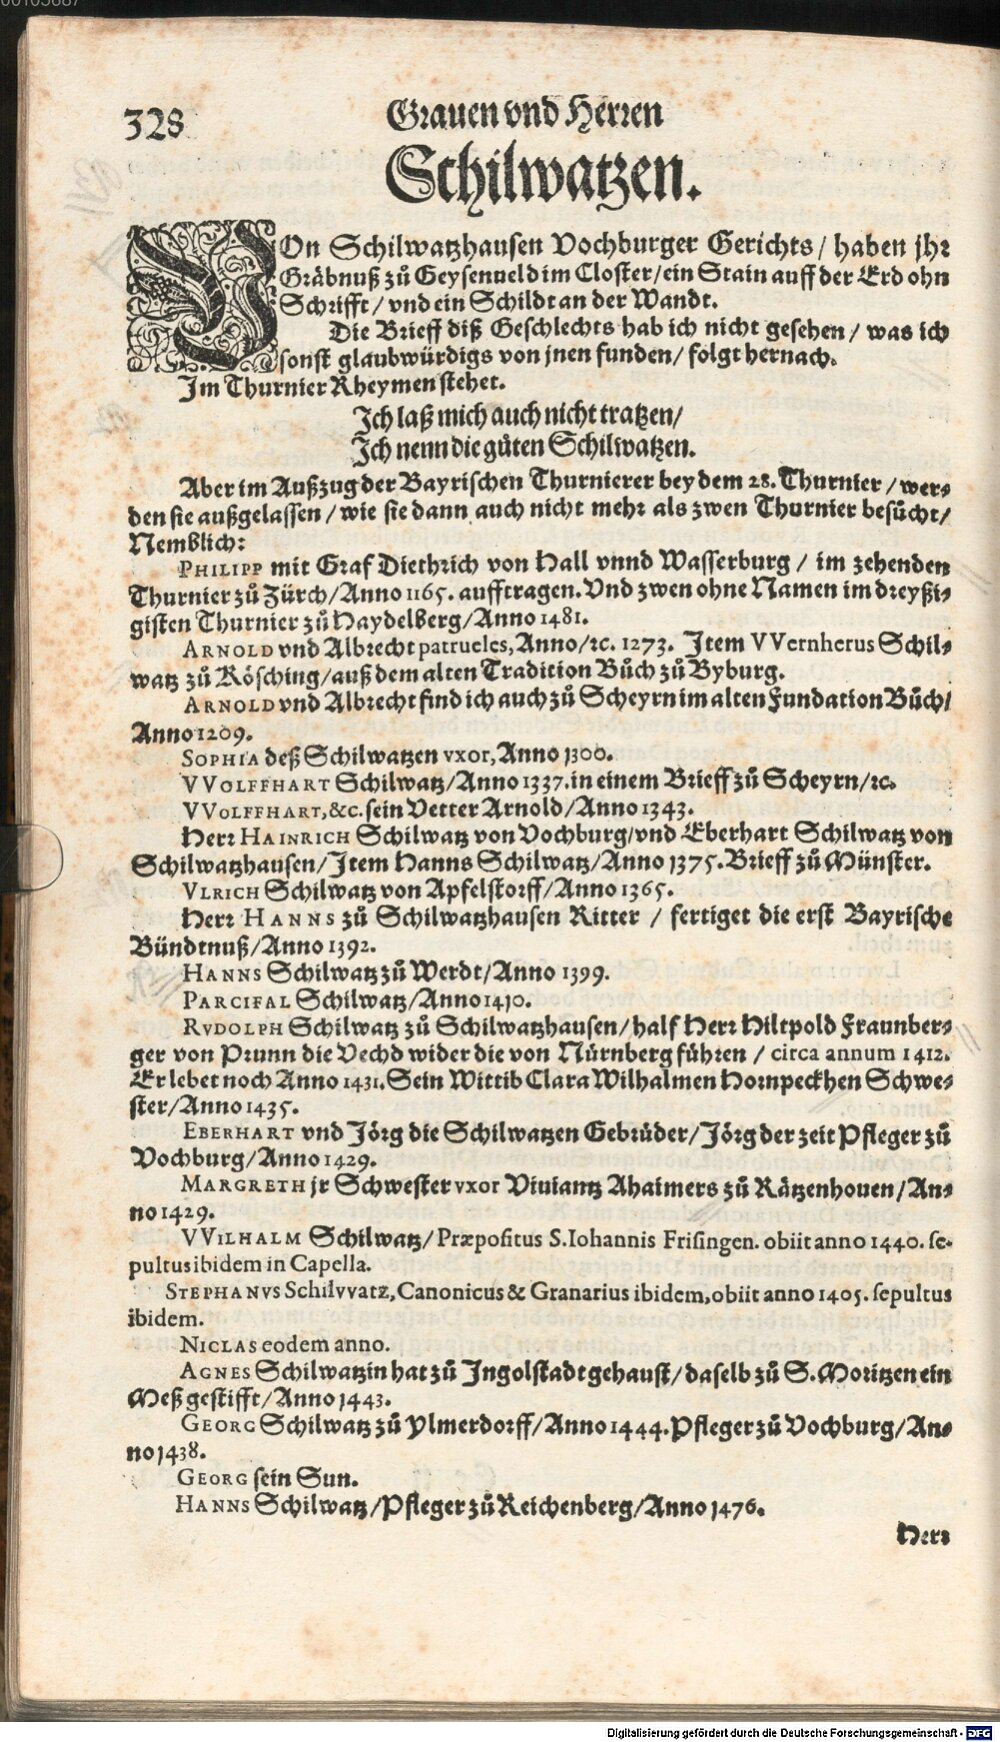 00105687
328
Grauen vnd Herren
Schilwatzen.
VOn Schilwatzhausen Vochburger Gerichts / haben jhr
Gräbnuß zů Geysenueld im Closter / ein Stain auff der Erd ohn
Schrifft / vnd ein Schildt an der Wandt.
Die Brieff diß Geschlechts hab ich nicht gesehen / was ich
sonst glaubwürdigs von jnen funden / folgt hernach.
Im Thurnier Rheymen stehet.
Ich laß mich auch nicht tratzen /
Ich nenn die gůten Schilwatzen.
Aber im Außzug der Bayrischen Thurnierer bey dem 28. Thurnier / wer-
den sie außgelassen / wie sie dann auch nicht mehr als zwen Thurnier besůcht /
Nemblich:
PHILIPP mit Graf Diethrich von Hall vnnd Wasserburg / im zehenden
Thurnier zů Zürch / Anno 1165. aufftragen. Vnd zwen ohne Namen im dreyßi-
gisten Thurnier zů Haydelberg / Anno 1481.
ARNOLD vnd Albrecht patrueles, Anno / ꝛc. 1273. Item VVernherus Schil-
watz zů Kösching / auß dem alten Tradition Bůch zů Byburg.
ARNOLD vnd Albrecht find ich auch zů Scheyrn im alten Fundation Bůch /
Anno 1209.
SOPHIA deß Schilwatzen vxor, Anno 1300.
VVOLFFHART Schilwatz / Anno 1337. in einem Brieff zů Scheyrn / ꝛc.
VVOLFFHART, &c. sein Vetter Arnold / Anno 1343.
Herr HAINRICH Schilwatz von Vochburg / vnd Eberhart Schilwatz von
Schilwatzhausen / Item Hanns Schilwatz / Anno 1375. Brieff zů Münster.
VLRICH Schilwatz von Apfelstorff / Anno 1365.
Herr HANNS zů Schilwatzhausen Ritter / fertiget die erst Bayrische
Bündtnuß / Anno 1392.
HANNS Schilwatz zů Werdt / Anno 1399.
PARCIFAL Schilwatz / Anno 1410.
RVDOLPH Schilwatz zů Schilwatzhausen / half Herr Hiltpold Fraunber-
ger von Prunn die Vechd wider die von Nürnberg führen / circa annum 1412.
Er lebet noch Anno 1431. Sein Wittib Clara Wilhalmen Hornpeckhen Schwe-
ster / Anno 1435.
EBERHART vnd Jörg die Schilwatzen Gebrüder / Jörg der zeit Pfleger zů
Vochburg / Anno 1429.
MARGRETH jr Schwester vxor Viuiantz Ahaimers zů Rätzenhouen / An-
no 1429.
VVILHALM Schilwatz / Præpositus S. Iohannis Frisingen. obiit anno 1440. se-
pultus ibidem in Capella.
STEPHANVS Schilvvatz, Canonicus & Granarius ibidem, obiit anno 1405. sepultus
ibidem.
NICLAS eodem anno.
AGNES Schilwatzin hat zů Ingolstadt gehaust / daselb zů S. Moritzen ein
Meß gestifft / Anno 1443.
GEORG Schilwatz zů Ylmerdorff / Anno 1444. Pfleger zů Vochburg / An-
no 1438.
GEORG sein Sun.
HANNS Schilwatz / Pfleger zů Reichenberg / Anno 1476.
Herr
Digitalisierung gefördert durch die Deutsche Forschungsgemeinschaft - DFG